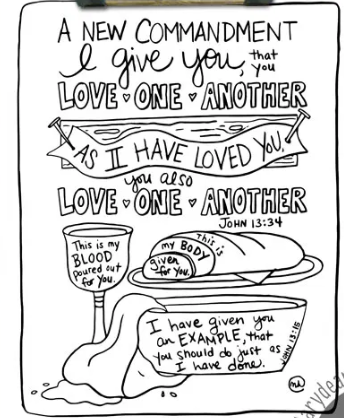 A NEW COMMANDMENT
I give you, that
you
LOVE ♥ ONE ♥ ANOTHER
AS I HAVE LOVED YOU,
you also
LOVE ♥ ONE ♥ ANOTHER
JOHN 13:34
This is my
BLOOD
poured out
for You.
This is
my BODY
given
for You.
I have given you
an EXAMPLE, that
You should do just as
I have done.
JOHN 13:15